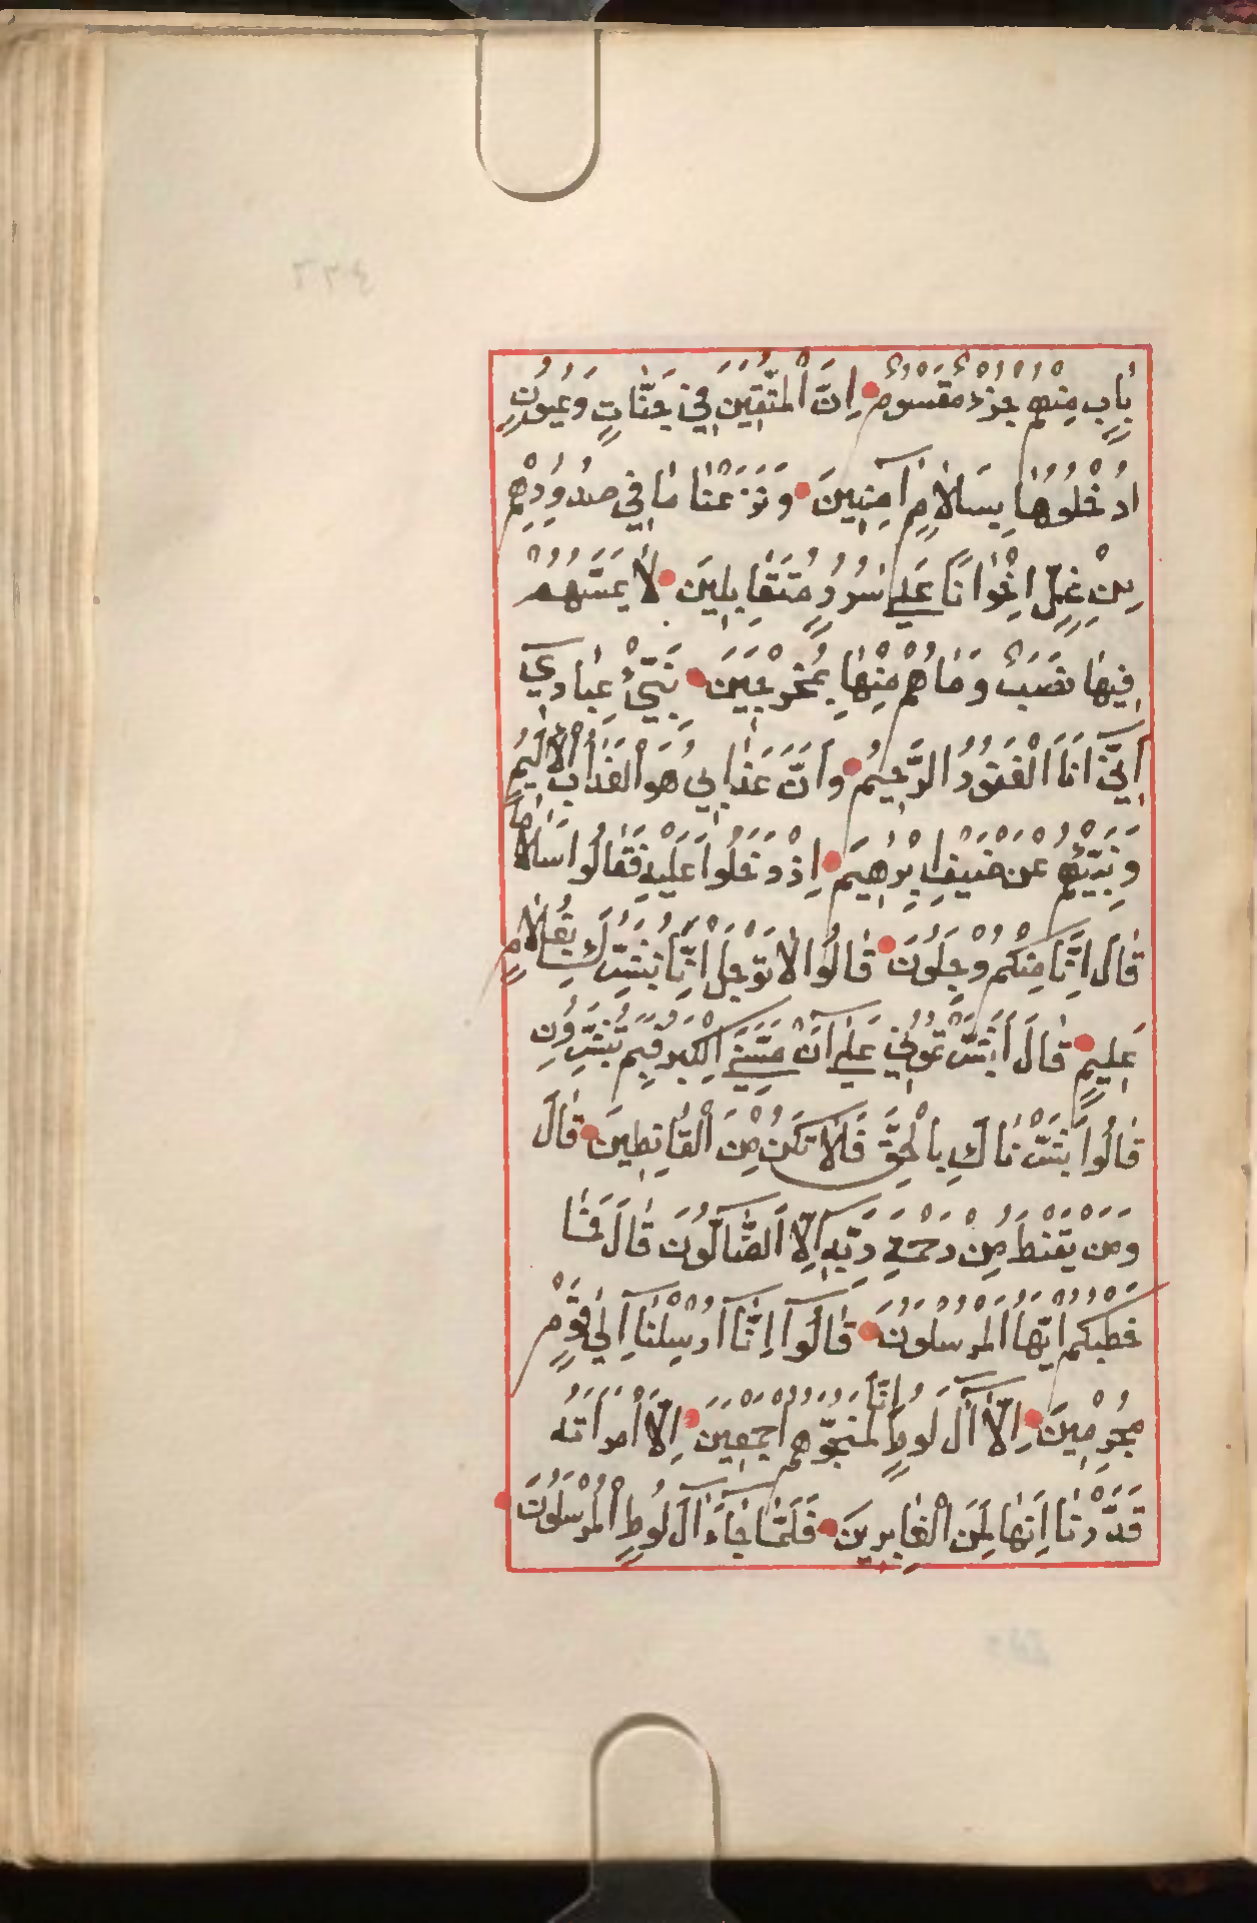 بَابٍ مِنْهُمْ جُزْءٌ مَقْسُومٌ اِنَّ الْمُتَّقِينَ فِي جَنَّاتٍ وَعُيُونٍ
اُدْخُلُوهَا بِسَلَامٍ آمِنِينَ وَنَزَعْنَا مَا فِي صُدُورِهِمْ
مِنْ غِلٍّ اِخْوَانًا عَلَى سُرُرٍ مُتَقَابِلِينَ لَا يَمَسُّهُمْ
فِيهَا نَصَبٌ وَمَا هُمْ مِنْهَا بِمُخْرَجِينَ نَبِّئْ عِبَادِي
اَنِّي اَنَا الْغَفُورُ الرَّحِيمُ وَاَنَّ عَذَابِي هُوَ الْعَذَابُ الْاَلِيمُ
وَنَبِّئْهُمْ عَنْ ضَيْفِ اِبْرٰهِيمَ اِذْ دَخَلُوا عَلَيْهِ فَقَالُوا سَلَامًا
قَالَ اِنَّا مِنْكُمْ وَجِلُونَ قَالُوا لَا تَوْجَلْ اِنَّا نُبَشِّرُكَ بِغُلَامٍ
عَلِيمٍ قَالَ اَبَشَّرْتُمُونِي عَلَى اَنْ مَسَّنِيَ الْكِبَرُ فَبِمَ تُبَشِّرُونِ
قَالُوا بَشَّرْنَاكَ بِالْحَقِّ فَلَا تَكُنْ مِنَ الْقَانِطِينَ قَالَ
وَمَنْ يَقْنَطُ مِنْ رَحْمَةِ رَبِّهِ اِلَّا الضَّالُّونَ قَالَ فَمَا
خَطْبُكُمْ اَيُّهَا الْمُرْسَلُونَ قَالُوا اِنَّا اُرْسِلْنَا اِلَى قَوْمٍ
مُجْرِمِينَ اِلَّا آلَ لُوطٍ اِنَّا لَمُنَجُّوهُمْ اَجْمَعِينَ اِلَّا امْرَاَتَهُ
قَدَّرْنَا اِنَّهَا لَمِنَ الْغَابِرِينَ فَلَمَّا جَاءَ آلَ لُوطٍ الْمُرْسَلُونَ